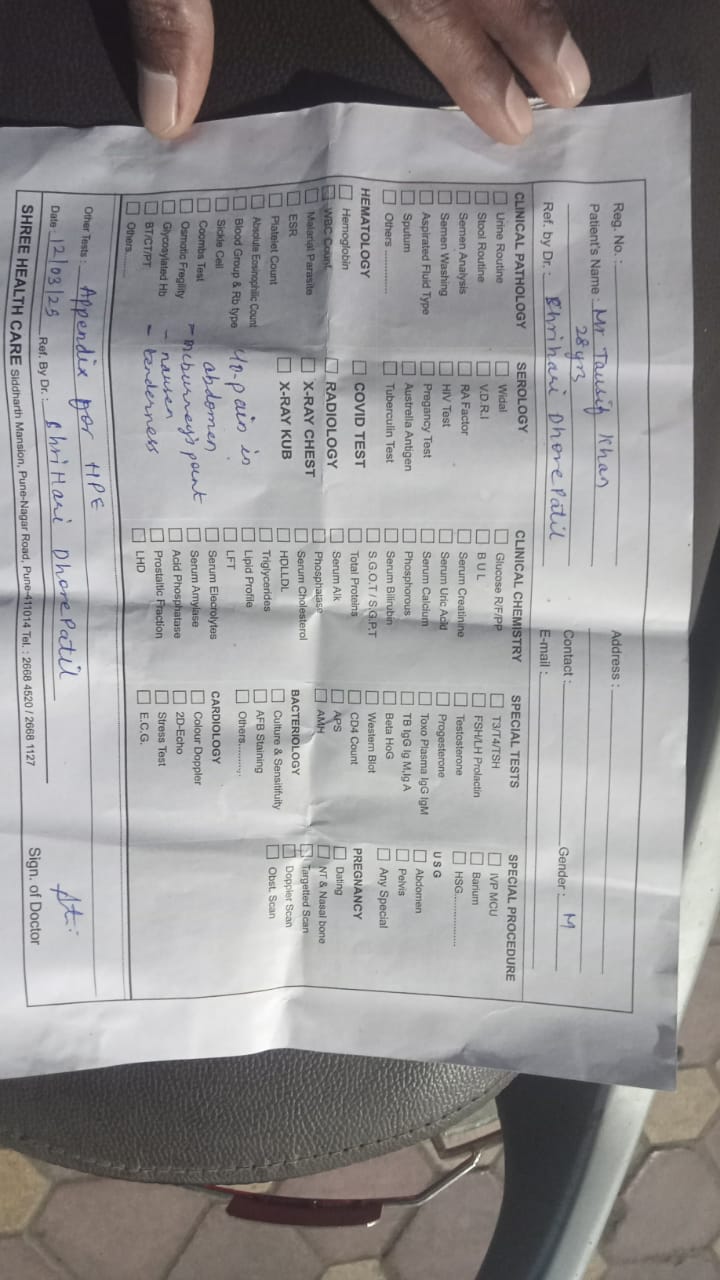 Reg. No. :
Address :
Patient's Name : Mr Tausif Khan
28 yrs
Contact :
Gender : M
Ref. by Dr. : Shrihari DhorePatil
E-mail :
CLINICAL PATHOLOGY
Urine Routine
Stool Routine
Semen Analysis
Semen Washing
Aspirated Fluid Type
Sputum
Others ..............
HEMATOLOGY
Hemoglobin
WBC Count
Malarial Parasite
ESR
Platelet Count
Absolute Eosinophilic Count
Blood Group & Rb type
Sickle Cell
Coombs Test
Osmotic Fregility
Glycosylated Hb
BT/CT/PT
Others..........
SEROLOGY
Widal
V.D.R.I
RA Factor
HIV Test
Pregancy Test
Australia Antigen
Tuberculin Test
COVID TEST
RADIOLOGY
X-RAY CHEST
X-RAY KUB
pain in
abdomen
- mcburneys point
- nausea
- tenderness
CLINICAL CHEMISTRY
Glucose R/F/PP
B U L
Serum Creatinine
Serum Uric Acid
Serum Calcium
Phosphorous
Serum Bilirubin
S.G.O.T / S.G.P.T
Total Proteins
Serum Alk
Phosphatase
Serum Cholesterol
HDLLDL
Triglycerides
Lipid Profile
LFT
Serum Elecrolytes
Serum Amylase
Acid Phosphatase
Prostaltic Fraction
LHD
SPECIAL TESTS
T3/T4/TSH
FSH/LH Prolactin
Testosterone
Progesterone
Toxo Plasma IgG IgM
TB IgG Ig M,Ig A
Beta HoG
Western Blot
CD4 Count
APS
AMH
BACTERIOLOGY
Culture & Sensitifuity
AFB Staining
Others..........
CARDIOLOGY
Colour Doppler
2D-Echo
Stress Test
E.C.G.
SPECIAL PROCEDURE
IVP MCU
Barium
HSG..................
U S G
Abdomen
Pelvis
Any Special
PREGNANCY
Dating
NT & Nasal bone
Targetted Scan
Doppler Scan
Obst. Scan
Other Tests : Appendix for HPE
Date : 12/03/25 Ref. By Dr. : ShriHari DhorePatil
Sign. of Doctor
SHREE HEALTH CARE Siddharth Mansion, Pune-Nagar Road, Pune-411014 Tel. : 2668 4520 / 2668 1127